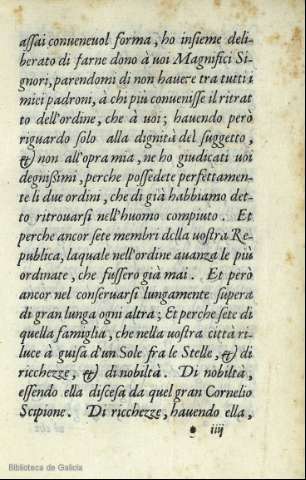 assai conueneuol forma, ho insieme deli-
berato di farne dono à voi Magnifici Si-
gnori, parendomi di non hauere tra tutti i
miei padroni, à chi piu conuenisse il ritrat
to dell'ordine, che à voi; hauendo però
riguardo solo alla dignità del suggetto,
& non all'opra mia, ne ho giudicati uoi
degnißimi, perche possedete perfettamen-
te li due ordini, che di già habbiamo det-
to ritrouarsi nell'huomo compiuto. Et
perche ancor sete membri della uostra Re-
publica, laquale nell'ordine auanza le più
ordinate, che fussero già mai. Et però
ancor nel conseruarsi lungamente supera
di gran lunga ogni altra; Et perche sete di
quella famiglia, che nella uostra città ri-
luce à guisa d'un Sole fra le Stelle, & di
ricchezze, & di nobiltà. Di nobiltà,
essendo ella discesa da quel gran Cornelio
Scipione. Di ricchezze, hauendo ella,
iiij
Biblioteca de Galicia